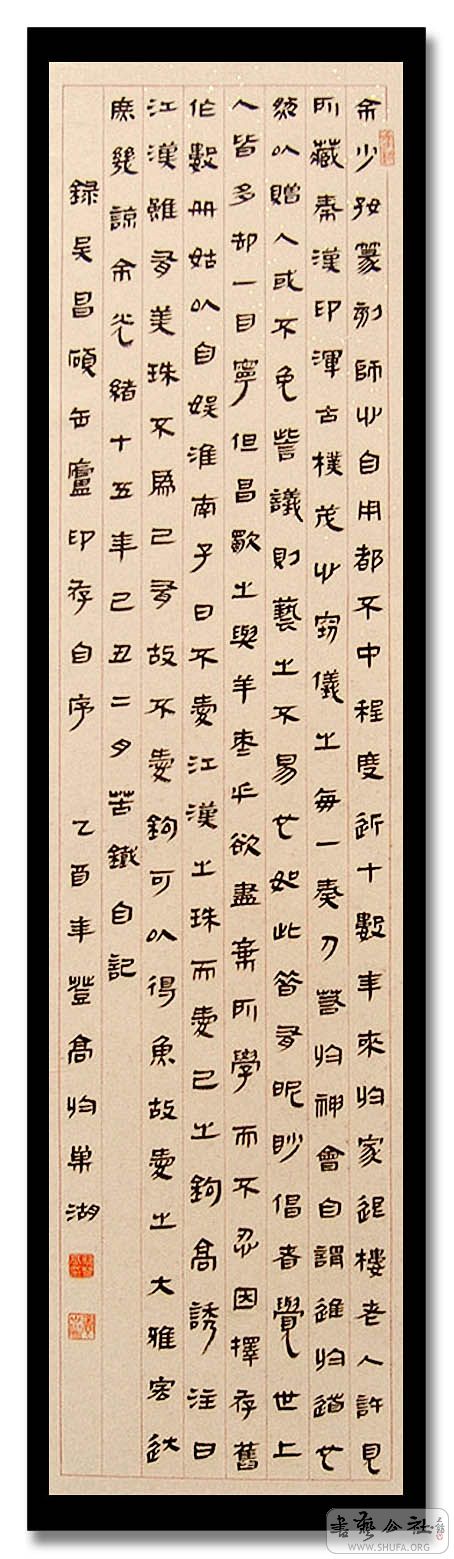 余少好篆刻師心自用都不中程度近十數年來於家退樓老人許見
所藏秦漢印渾古樸茂心竊儀之每一奏刀若於神會自謂進於道也
然以贈人或不免訾議則藝之不易也如此昔有昵眇倡者覺世上
人皆多却一目寧但昌歜之與羊棗乎欲盡棄所學而不忍因擇存舊
作數冊姑以自娛淮南子曰不愛江漢之珠而愛己之鉤高誘注曰
江漢雖有美珠不為己有故不愛鉤可以得魚故愛之大雅宏達
庶幾諒余光緒十五年己丑二月苦鐵自記
錄吳昌碩缶廬印存自序 乙酉年登高於巢湖
书艺公社
WWW.SHUFA.ORG